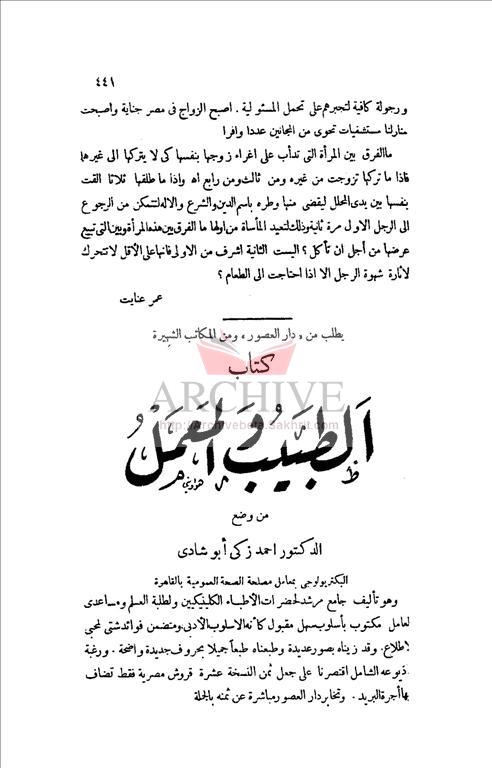 ٤٤١
ورجولة كافية لتجبرهم على تحمل المسئولية . اصبح الزواج فى مصر جناية واصبحت
منازلنا مستشفيات تحوى من المجانين عددا وافرا
ماالفرق بين المرأة التى تدأب على اغراء زوجها بنفسها كى لا يتركها الى غيرها
فاذا ما تركها تزوجت من غيره ومن ثالث ومن رابع اه واذا ما طلقها ثلاثا القت
بنفسها بين يدى المحلل ليقضى منها وطره باسم الدين والشرع والاله لتتمكن من الرجوع
الى الرجل الاول مرة ثانية وذلك لتعيد المأساة من اولها ما الفرق بين هذه المرأة وبين التى تبيع
عرضها من أجل ان تأكل ؟ اليست الثانية اشرف من الاولى فانها على الأقل لا تتحرك
لاثارة شهوة الرجل الا اذا احتاجت الى الطعام ؟
عمر عنايت
يطلب من « دار العصور » ومن المكاتب الشهيرة
كتاب
ARCHIVE
http://Archivebeta.Sakhrit.com
الطبيب والمعمل
من وضع
الدكتور احمد زكى أبو شادى
البكتريولوجى بمعامل مصلحة الصحة العمومية بالقاهرة
وهو تأليف جامع مرشد لحضرات الأطباء الكلينيكيين ولطلبة العلم ومساعدى
لعامل مكتوب بأسلوب سهل مقبول كأنه الاسلوب الأدبى ومتضمن فوائد شتى لمحبى
اطلاع . وقد زيناه بصور عديدة وطبعناه طبعاً جميلا بحروف جديدة واضحة . ورغبة
ذيوعه الشامل اقتصرنا على جعل ثمن النسخة عشرة قروش مصرية فقط تضاف
بها أجرة البريد . وتخابر دار العصور مباشرة عن ثمنه بالجملة